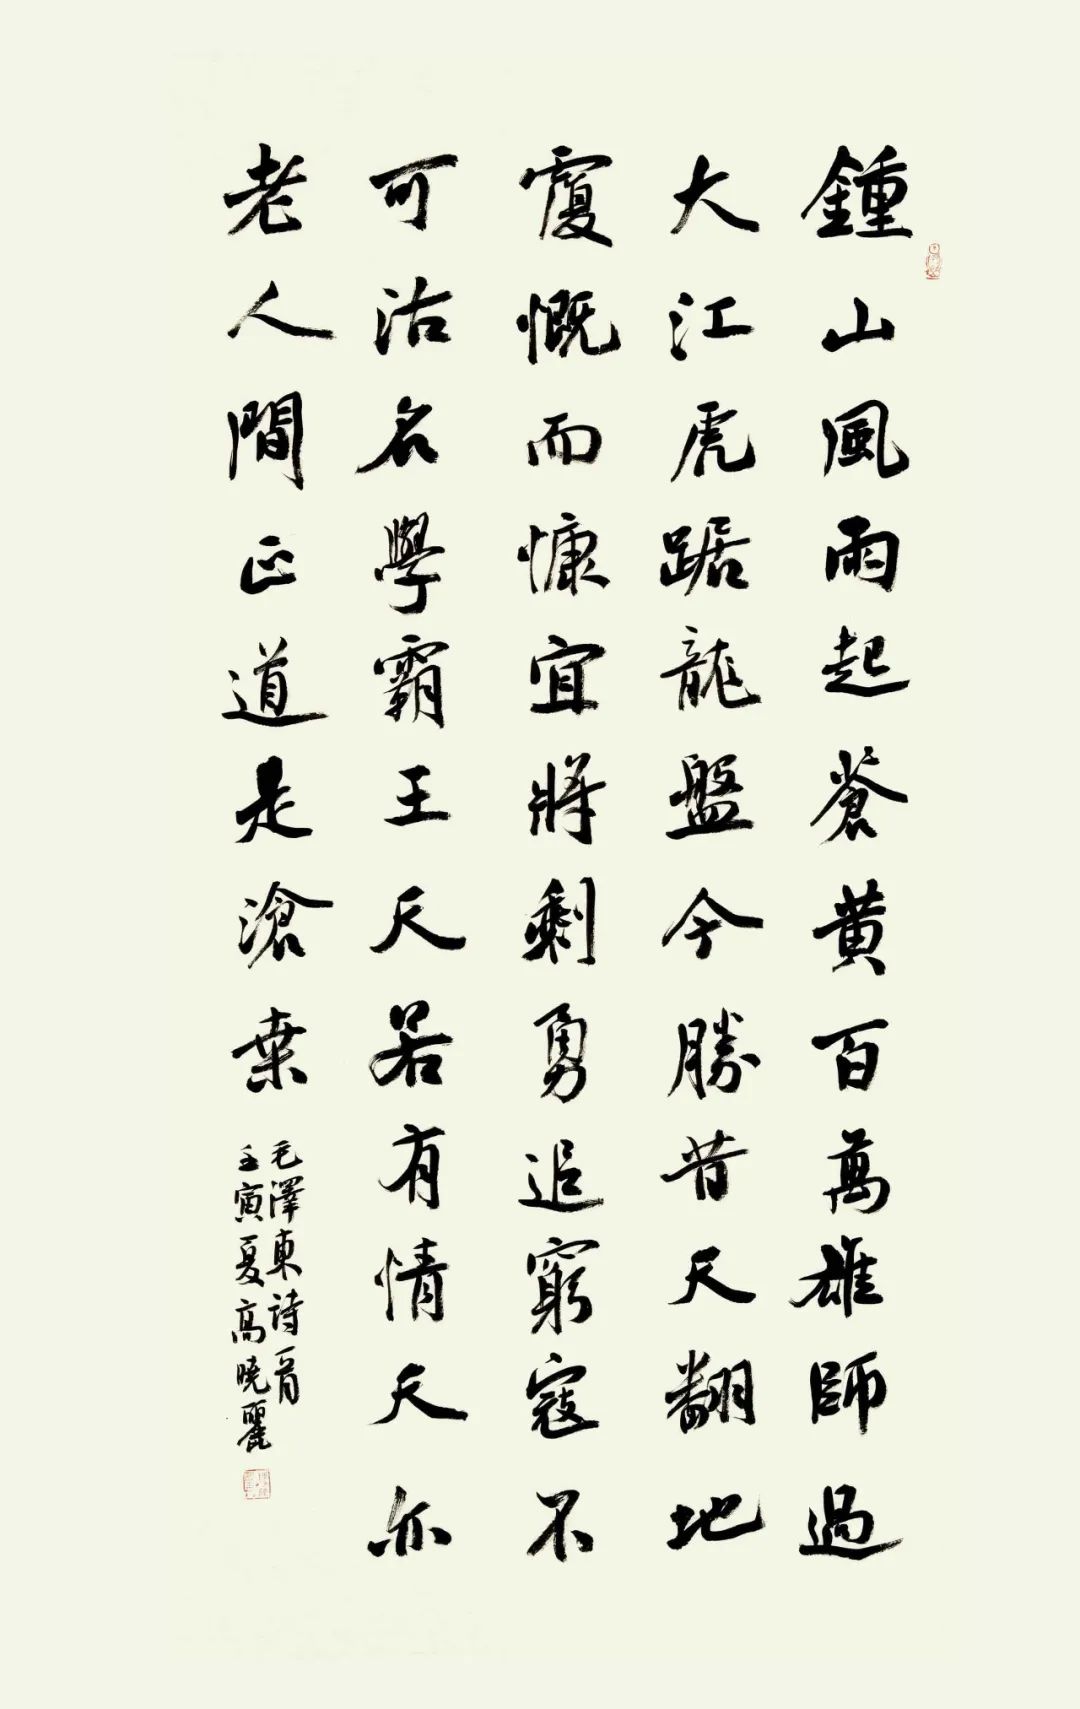 鍾山風雨起蒼黃百萬雄師過
大江虎踞龍盤今勝昔天翻地
覆慨而慷宜將剩勇追窮寇不
可沽名學霸王天若有情天亦
老人間正道是滄桑
毛澤東詩一首
壬寅夏高曉麗